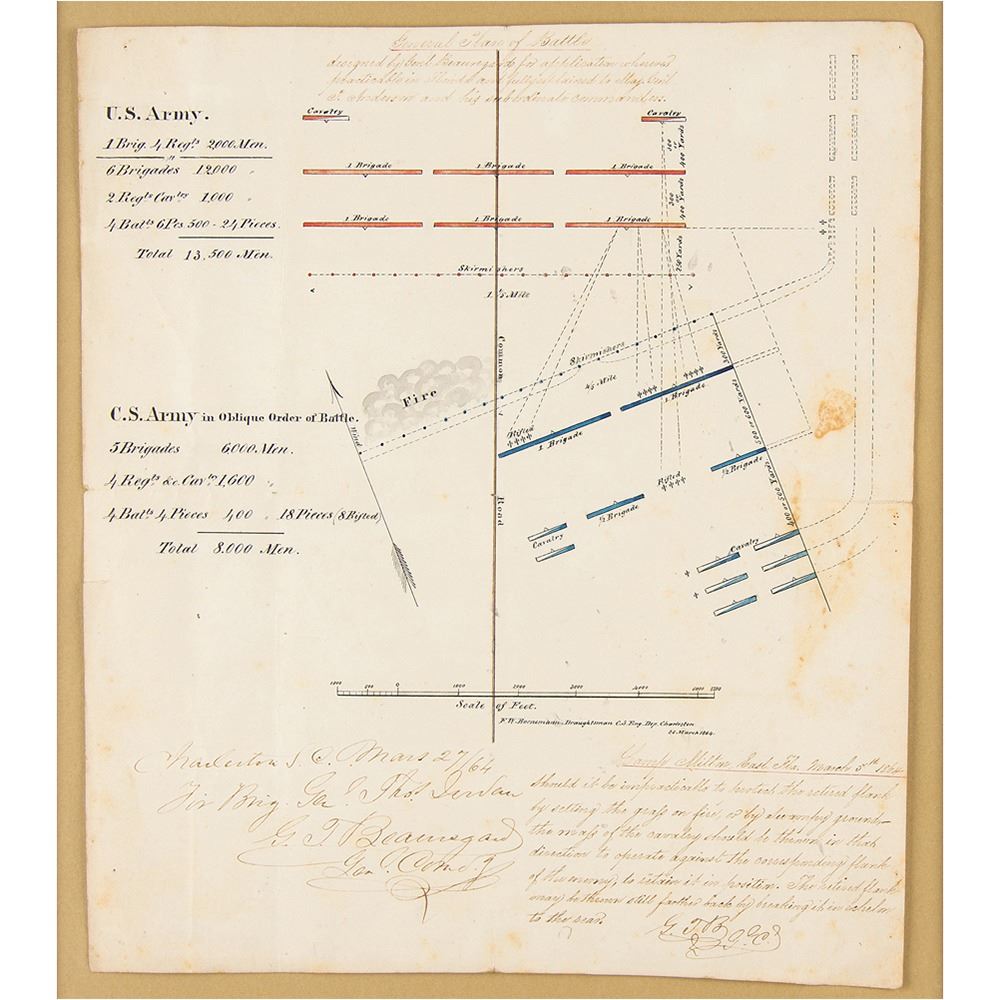 General Plan of Battle
designed by Genl Beauregard for application wherever
practicable in Florida and fully explained to Maj. Genl
P. Anderson and his subordinate commanders.
U.S. Army.
1 Brig. 4 Regts 2000 Men.
6 Brigades 12,000 "
2 Regts Cavtry 1,000 "
4 Batts 6 Pcs 500 - 24 Pieces.
Total 13,500 Men.
Cavalry
Cavalry
1 Brigade
1 Brigade
1 Brigade
1 Brigade
1 Brigade
1 Brigade
400 Yards
400 Yards
250 Yards
Skirmishers
1 1/5 Mile
Common
Road
Skirmishers
4/5 Mile
Fire
Wind
300 Yards
1 Brigade
Rifled
1 Brigade
500 or 600 Yards
½ Brigade
Rifled
½ Brigade
400 or 500 Yards
Cavalry
Cavalry
C.S. Army in Oblique Order of Battle.
5 Brigades 6,000 Men.
4 Regts &c. Cavry 1,600
4 Batts 4 Pieces 400 " 18 Pieces (8 Rifled)
Total 8,000 Men.
1000 500 0 1000 2000 3000 4000 5000
Scale of Feet.
Draughtsman C.S. Eng. Dep. Charleston
March 1864.
Charleston S. C. Mars 27/64
For Brig. Genl Thos Jordan
G. T. Beauregard
Genl Comdg
Camp Milton East Fla. March 5th 1864
Should it be impracticable to protect the retired flank
by setting the grass on fire, or by swampy ground—
the mass of the cavalry should be thrown in that
direction to operate against the corresponding flank
of the enemy, to retain it in position. The retired flank
may be thrown still farther back by breaking it in echelon
to the rear.
G. T. B.